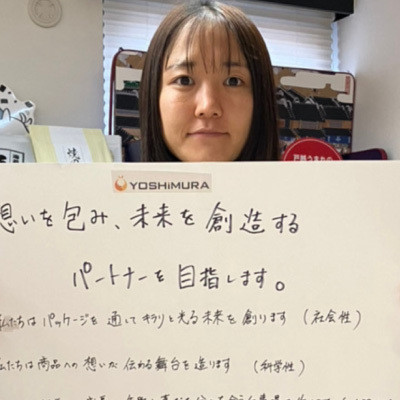 YOSHiMURA
想いを包み、未来を創造する
パートナーを目指します。
私たちはパッケージを通してキラリと光る未来を創ります（社会性）
私たちは商品への想いが伝わる舞台を造ります（科学性）
戸越うまれの